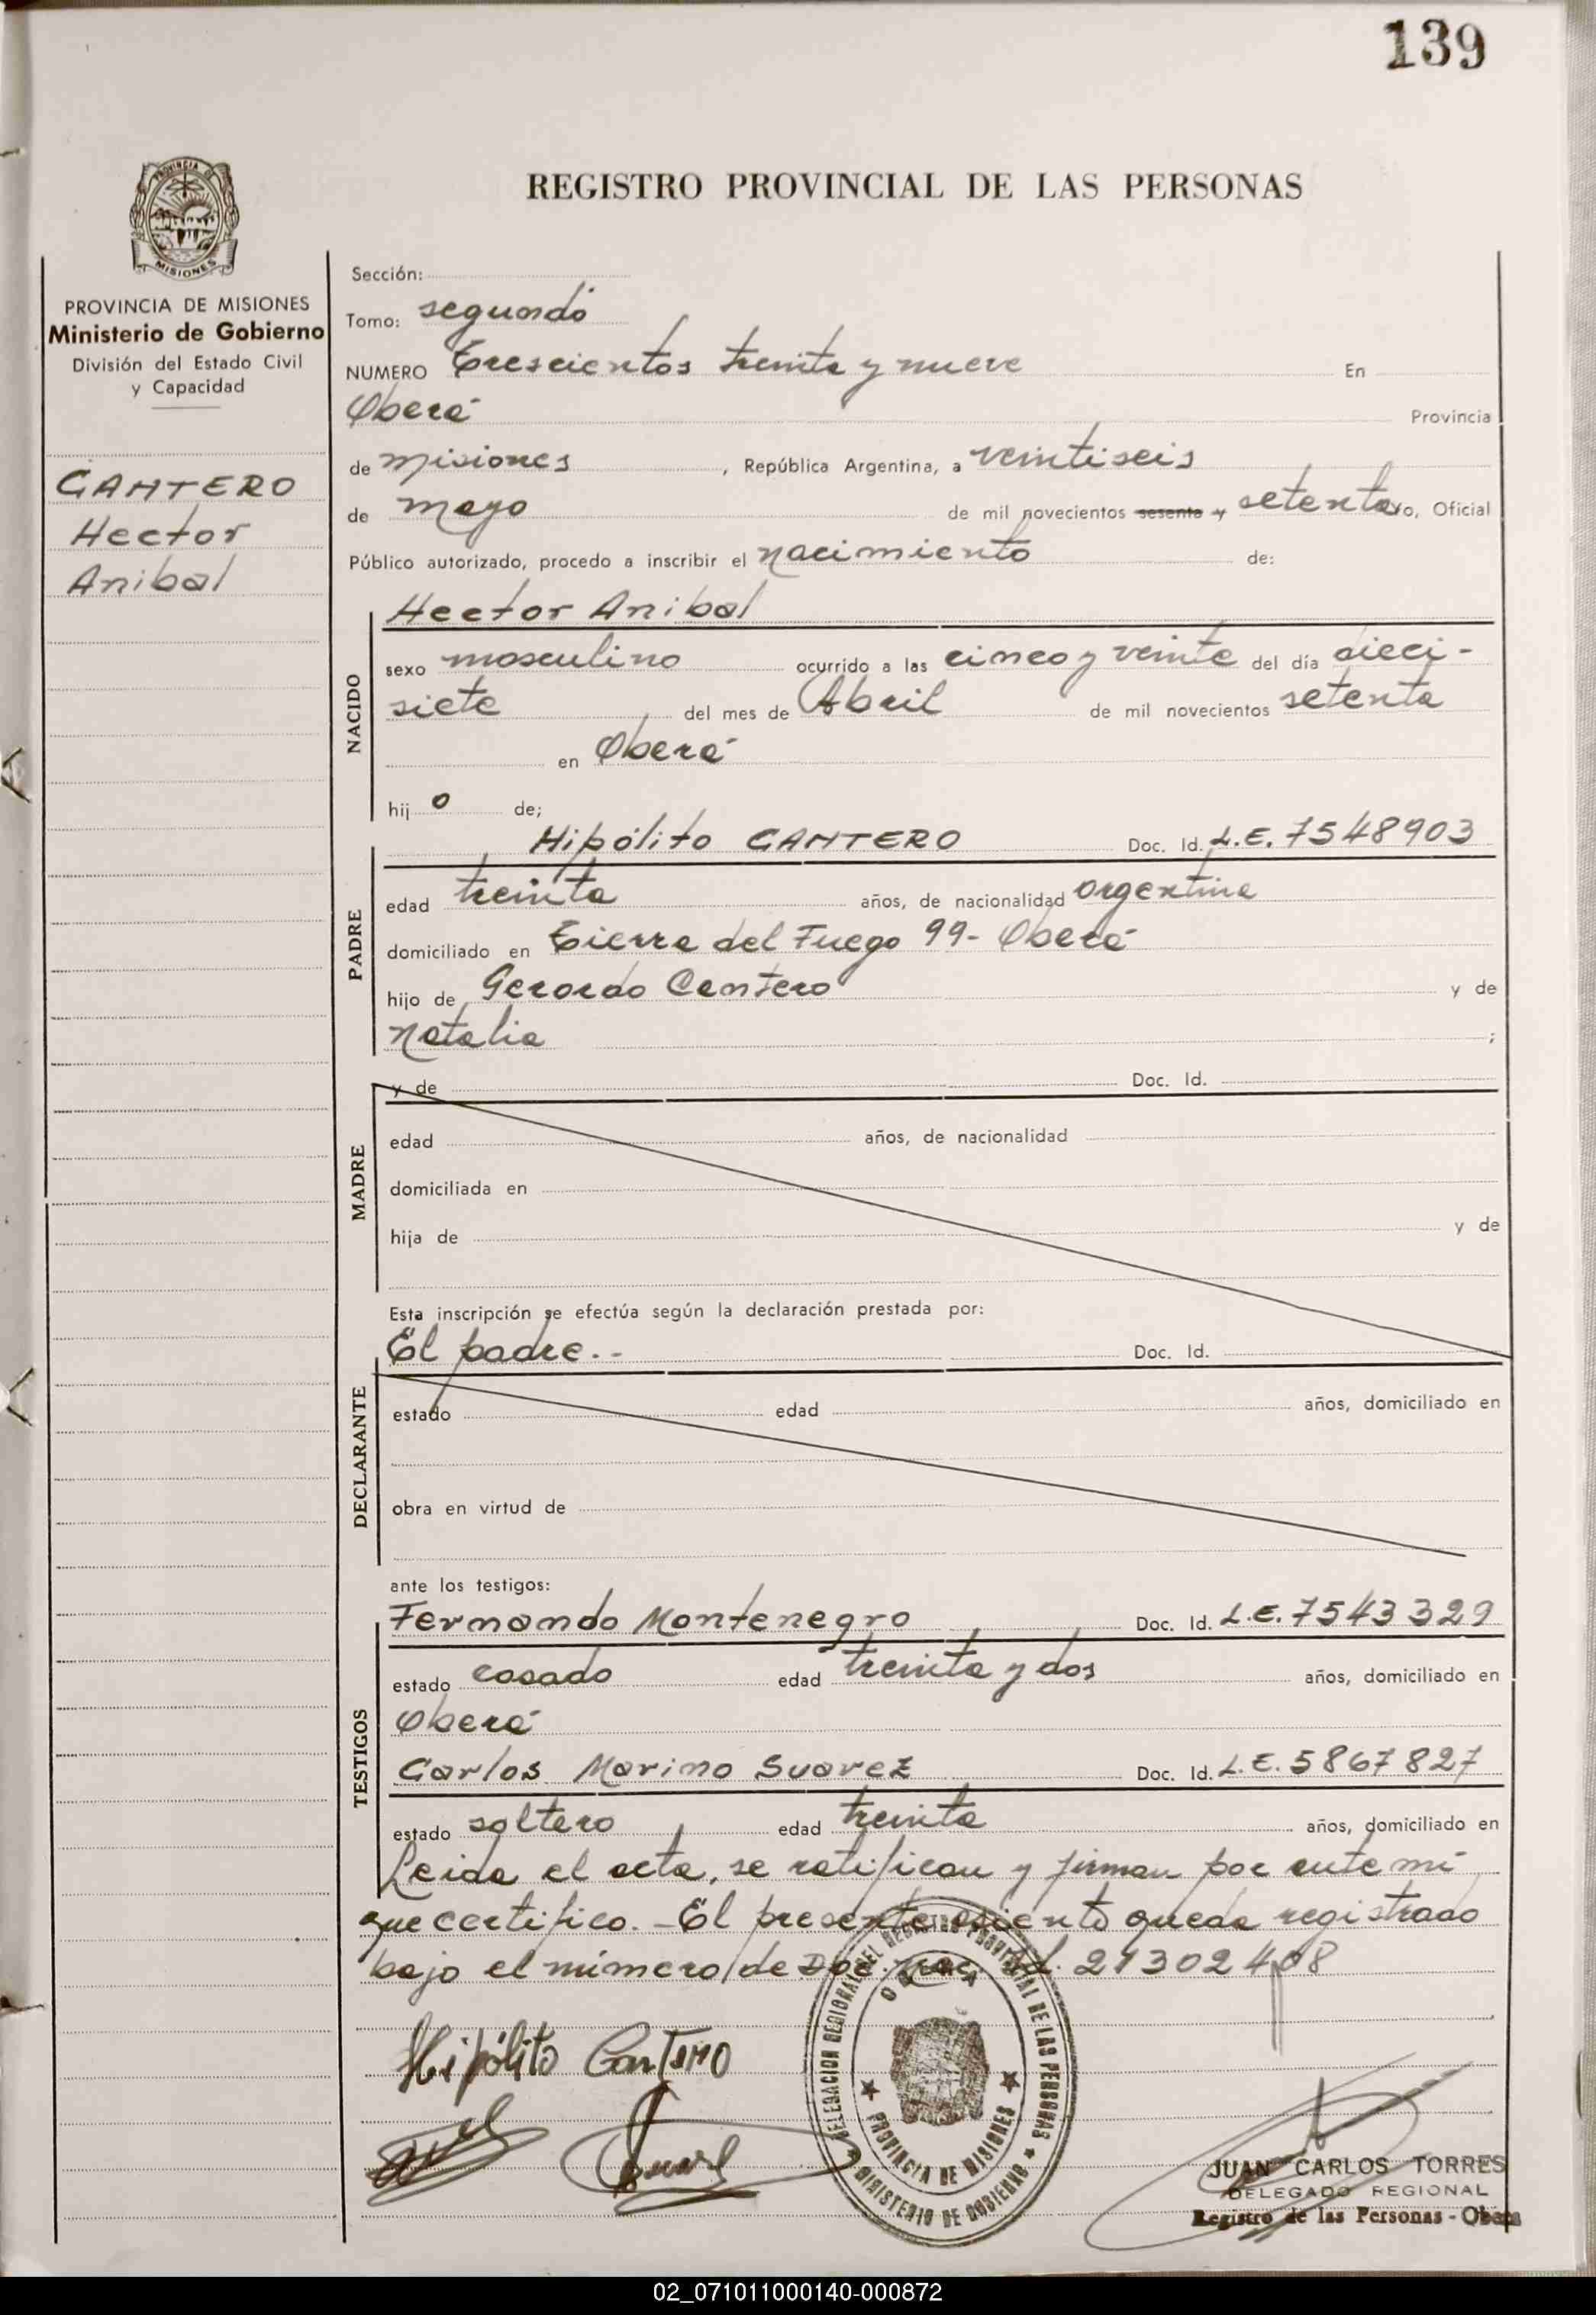 139
PROVINCIA DE
MISIONES
REGISTRO PROVINCIAL DE LAS PERSONAS
PROVINCIA DE MISIONES
Ministerio de Gobierno
División del Estado Civil
y Capacidad
CANTERO
Hector
Anibal
Sección:
Tomo: segundo
NUMERO Trescientos treinta y nueve En
Oberá Provincia
de Misiones, República Argentina, a veintiseis
de mayo de mil novecientos sesenta y setenta yo, Oficial
Público autorizado, procedo a inscribir el nacimiento de:
Hector Anibal
NACIDO
sexo masculino ocurrido a las cinco y veinte del día dieci-
siete del mes de Abril de mil novecientos setenta
en Oberá
hijo de;
Hipólito CANTERO Doc. Id. L.E. 7548903
PADRE
edad treinta años, de nacionalidad argentina
domiciliado en Tierra del Fuego 99- Oberá
hijo de Gerardo Cantero y de
Natalia ;
MADRE
y de Doc. Id.
edad años, de nacionalidad
domiciliada en
hija de y de
Esta inscripción se efectúa según la declaración prestada por:
El padre.-- Doc. Id.
DECLARANTE
estado edad años, domiciliado en
obra en virtud de
ante los testigos:
Fernando Montenegro Doc. Id. L.E. 7543329
TESTIGOS
estado casado edad treinta y dos años, domiciliado en
Oberá
Carlos Marino Suarez Doc. Id. L.E. 5867827
estado soltero edad treinta años, domiciliado en
Leida el acta, se ratifican y firman por ante mi
que certifico.- El presente asiento queda registrado
bajo el número de Doc. Nac. Id. 21302408
Hipólito Cantero
DELEGACION REGIONAL DEL REGISTRO PROVINCIAL DE LAS PERSONAS
OBERA
PROVINCIA DE MISIONES
MINISTERIO DE GOBIERNO
JUAN CARLOS TORRES
DELEGADO REGIONAL
Registro de las Personas - Obera
02_071011000140-000872